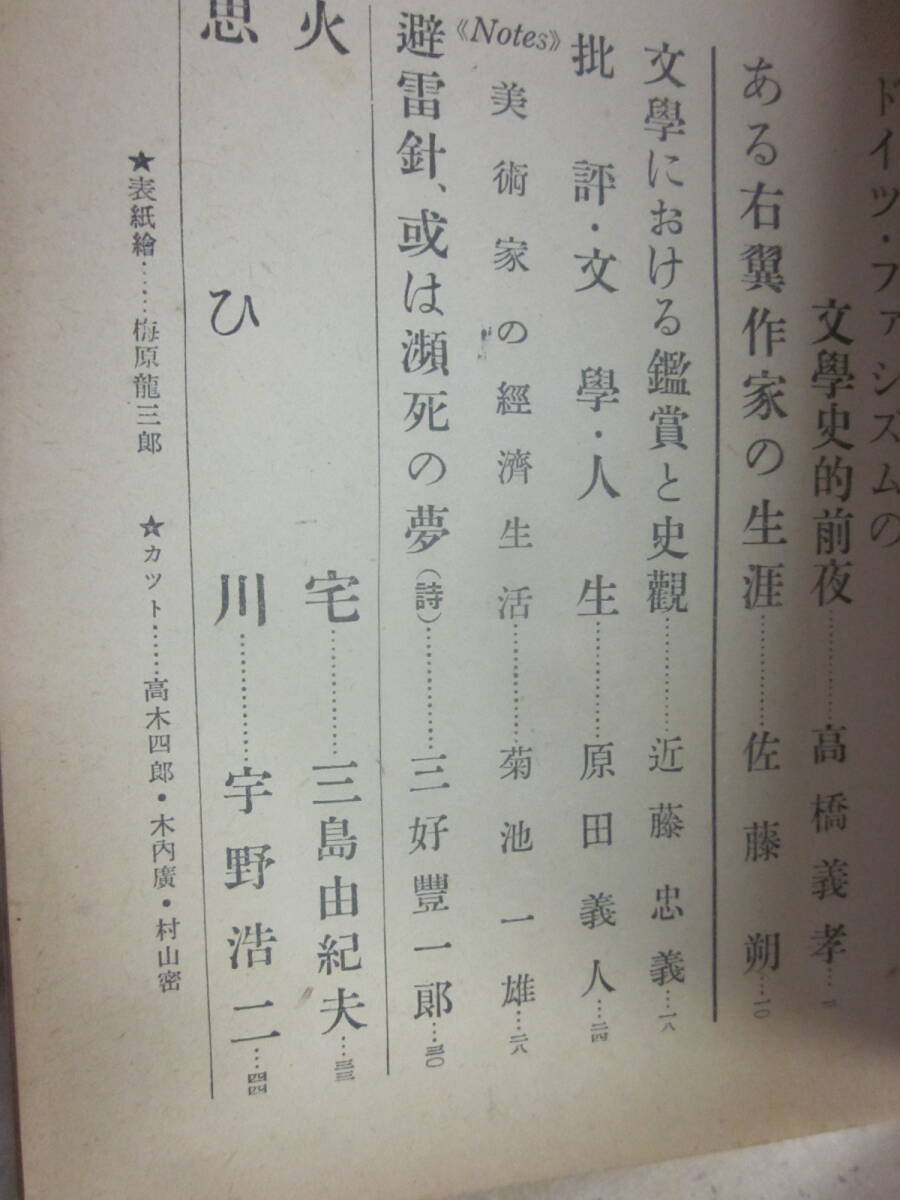 ドイツ・ファシズムの
文學史的前夜…………高橋義孝…二
ある右翼作家の生涯…………佐藤朔…一〇
文學における鑑賞と史觀…………近藤忠義…一八
批評・文學・人生…………原田義人…二四
《Notes》美術家の經濟生活…………菊池一雄…二八
避雷針、或は瀕死の夢(詩)…………三好豐一郎…三〇
火宅…………三島由紀夫…三三
思ひ川…………宇野浩二…四四
★表紙繪……梅原龍三郎 ★カツト……高木四郎・木內廣・村山密